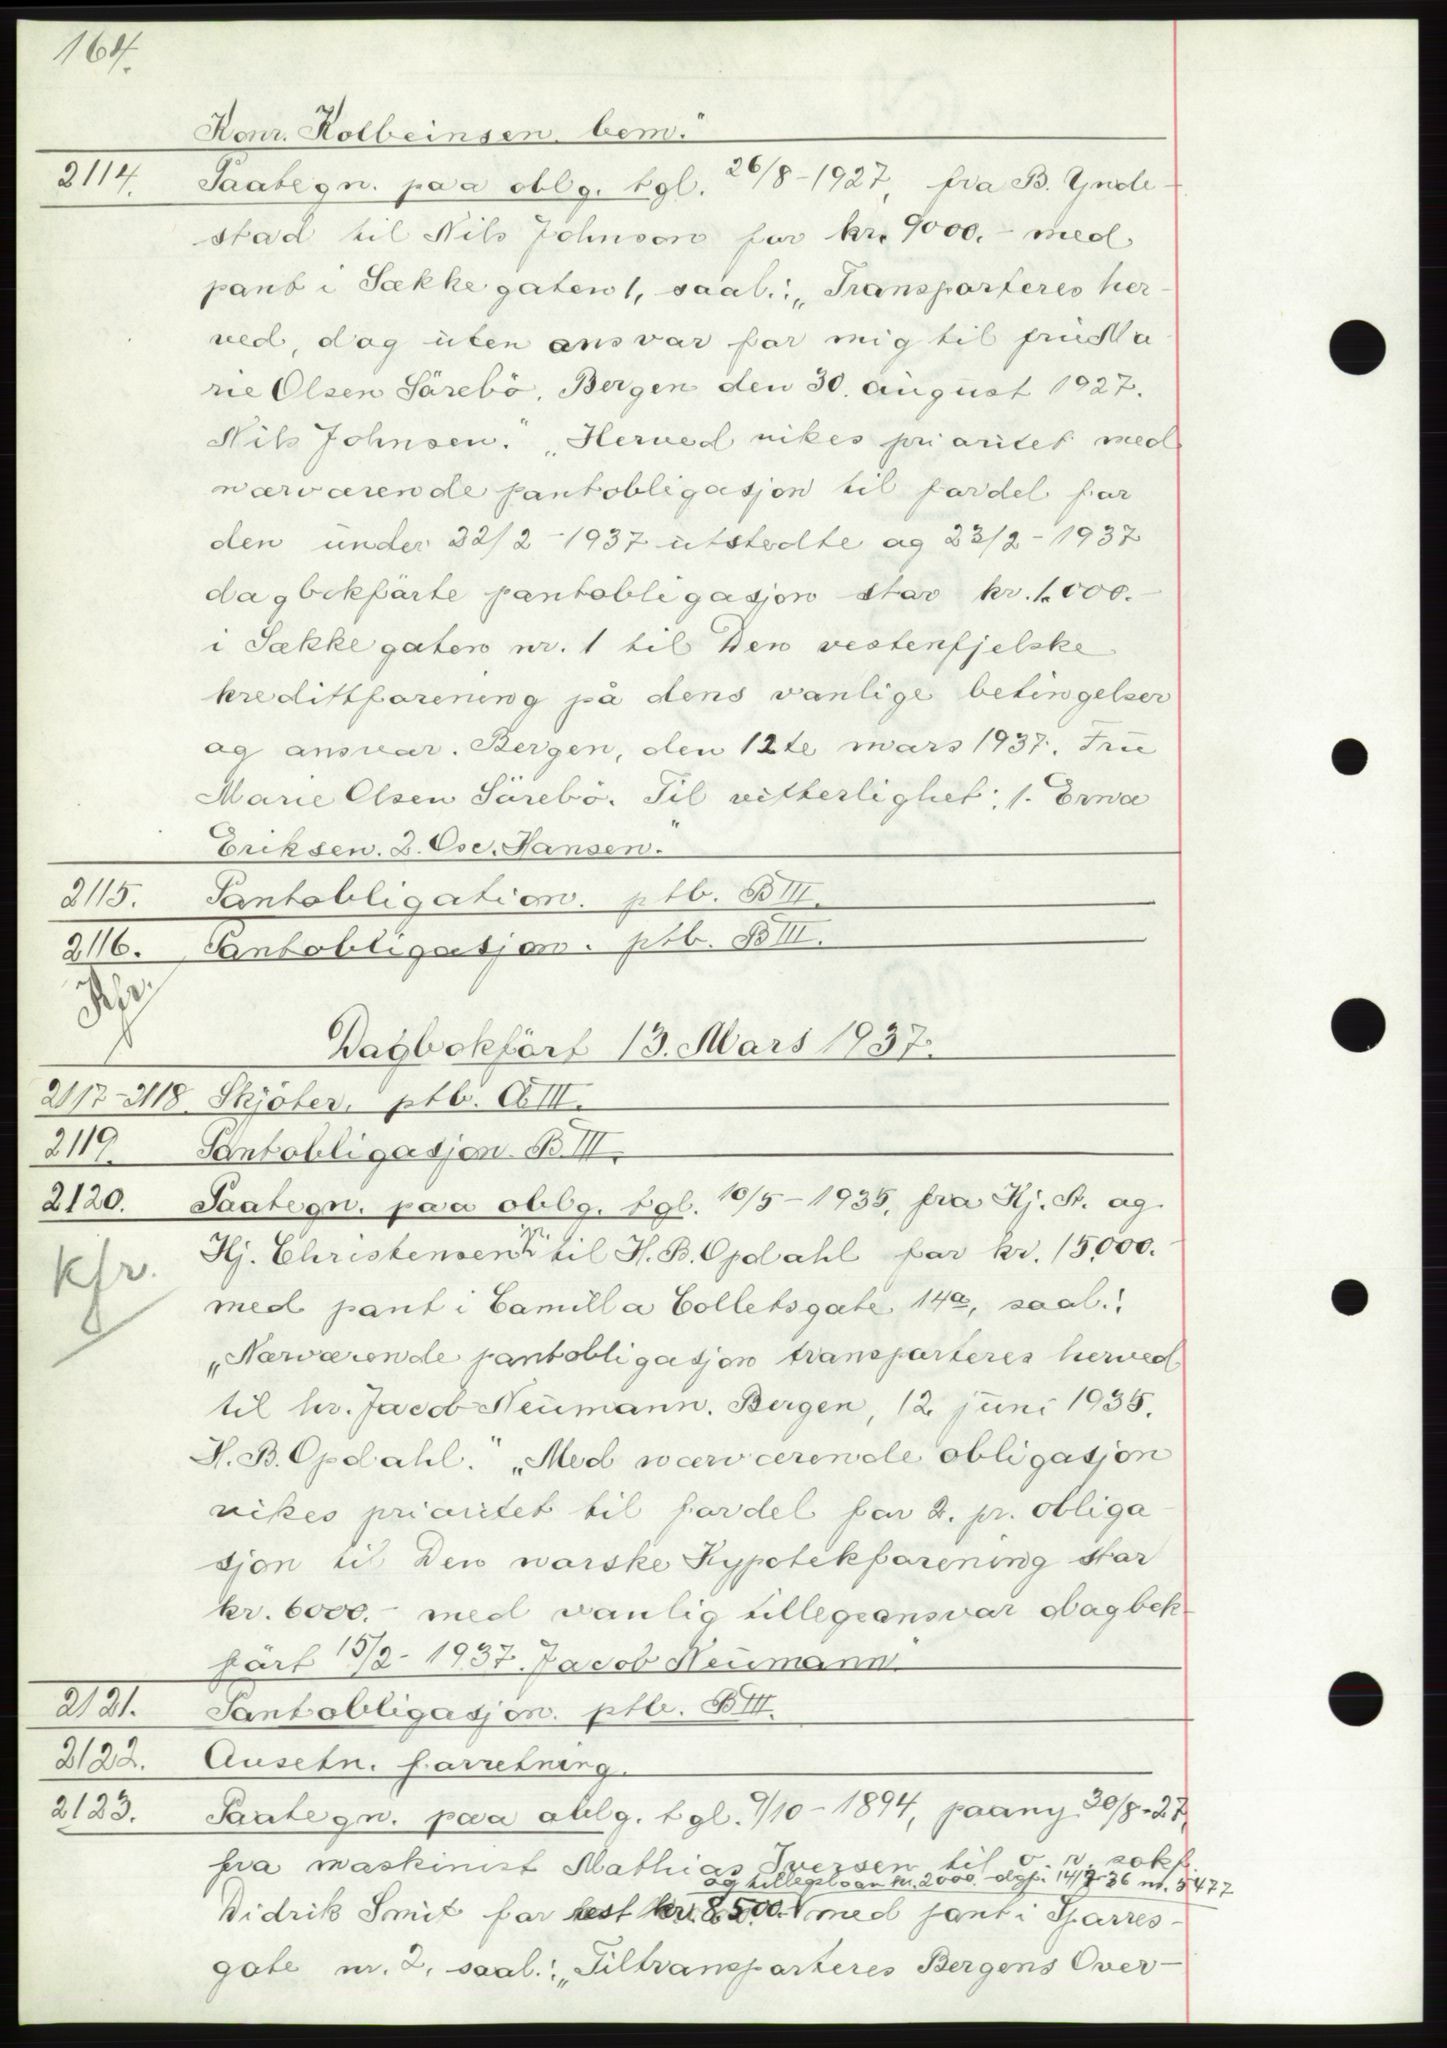 164.
Konr. Kolbeinsen. bem."
2114. Paategn. paa oblg. tgl. 26/8-1927, fra B. Ynde-
stad til Nils Johnson for kr. 9000.- med
pant i Sækkegaten 1, saal.: „Transporteres her-
ved, dog uten ansvar for mig til frü Ma-
rie Olsen Särebö. Bergen den 30. august 1927.
Nils Johnsen." „Herved vikes prioritet med
nærværende pantobligasjon til fordel for
den under 22/2-1937 utstedte og 23/2-1937
dagbokförte pantobligasjon stor kr. 1.000.-
i Sækkegaten nr. 1 til Den vestenfjelske
kredittforening på dens vanlige betingelser
og ansvar. Bergen, den 12te mars 1937. Frü
Marie Olsen Särebö. Til vitterlighet: 1. Erna
Eriksen. 2. Osc. Hansen."
2115. Pantobligation. ptb. B III.
2116. Pantobligasjon. ptb. B III.
Kfr.
Dagbokfört 13. Mars 1937.
2117-2118. Skjöter. ptb. A III.
2119. Pantobligasjon. B III.
2120. Paategn. paa oblg. tgl. 10/5-1935, fra Kj. St. og
Kj. Christensen jr. til H. B. Opdahl for kr. 15000.
kfr.
med pant i Camilla Colletsgate 14a, saal.:
„Nærværende pantobligasjon transporteres herved
til hr. Jacob Neümann. Bergen, 12 juni 1935.
H. B. Opdahl." „Med nærværende obligasjon
vikes prioritet til fordel for 2. pr. obliga-
sjon til Den norske Hypotekforening stor
kr. 6000.- med vanlig tilleggsansvar dagbok-
fört 15/2-1937. Jacob Neümann."
2121. Pantobligasjon. ptb. B III.
2122. Ausetn. forretning.
2123. Paategn. paa oblg. tgl. 9/10-1894, paany 30/8-27,
fra maskinist Mathias Iversen til o. r. sakf.
og tilleggsloan kr. 2000. dgf. 14/7-36 nr. 5477
Didrik Smit for rest kr. 8500.- med pant i Sparres-
gate nr. 2, saal.: „Tiltransporteres Bergens Over-